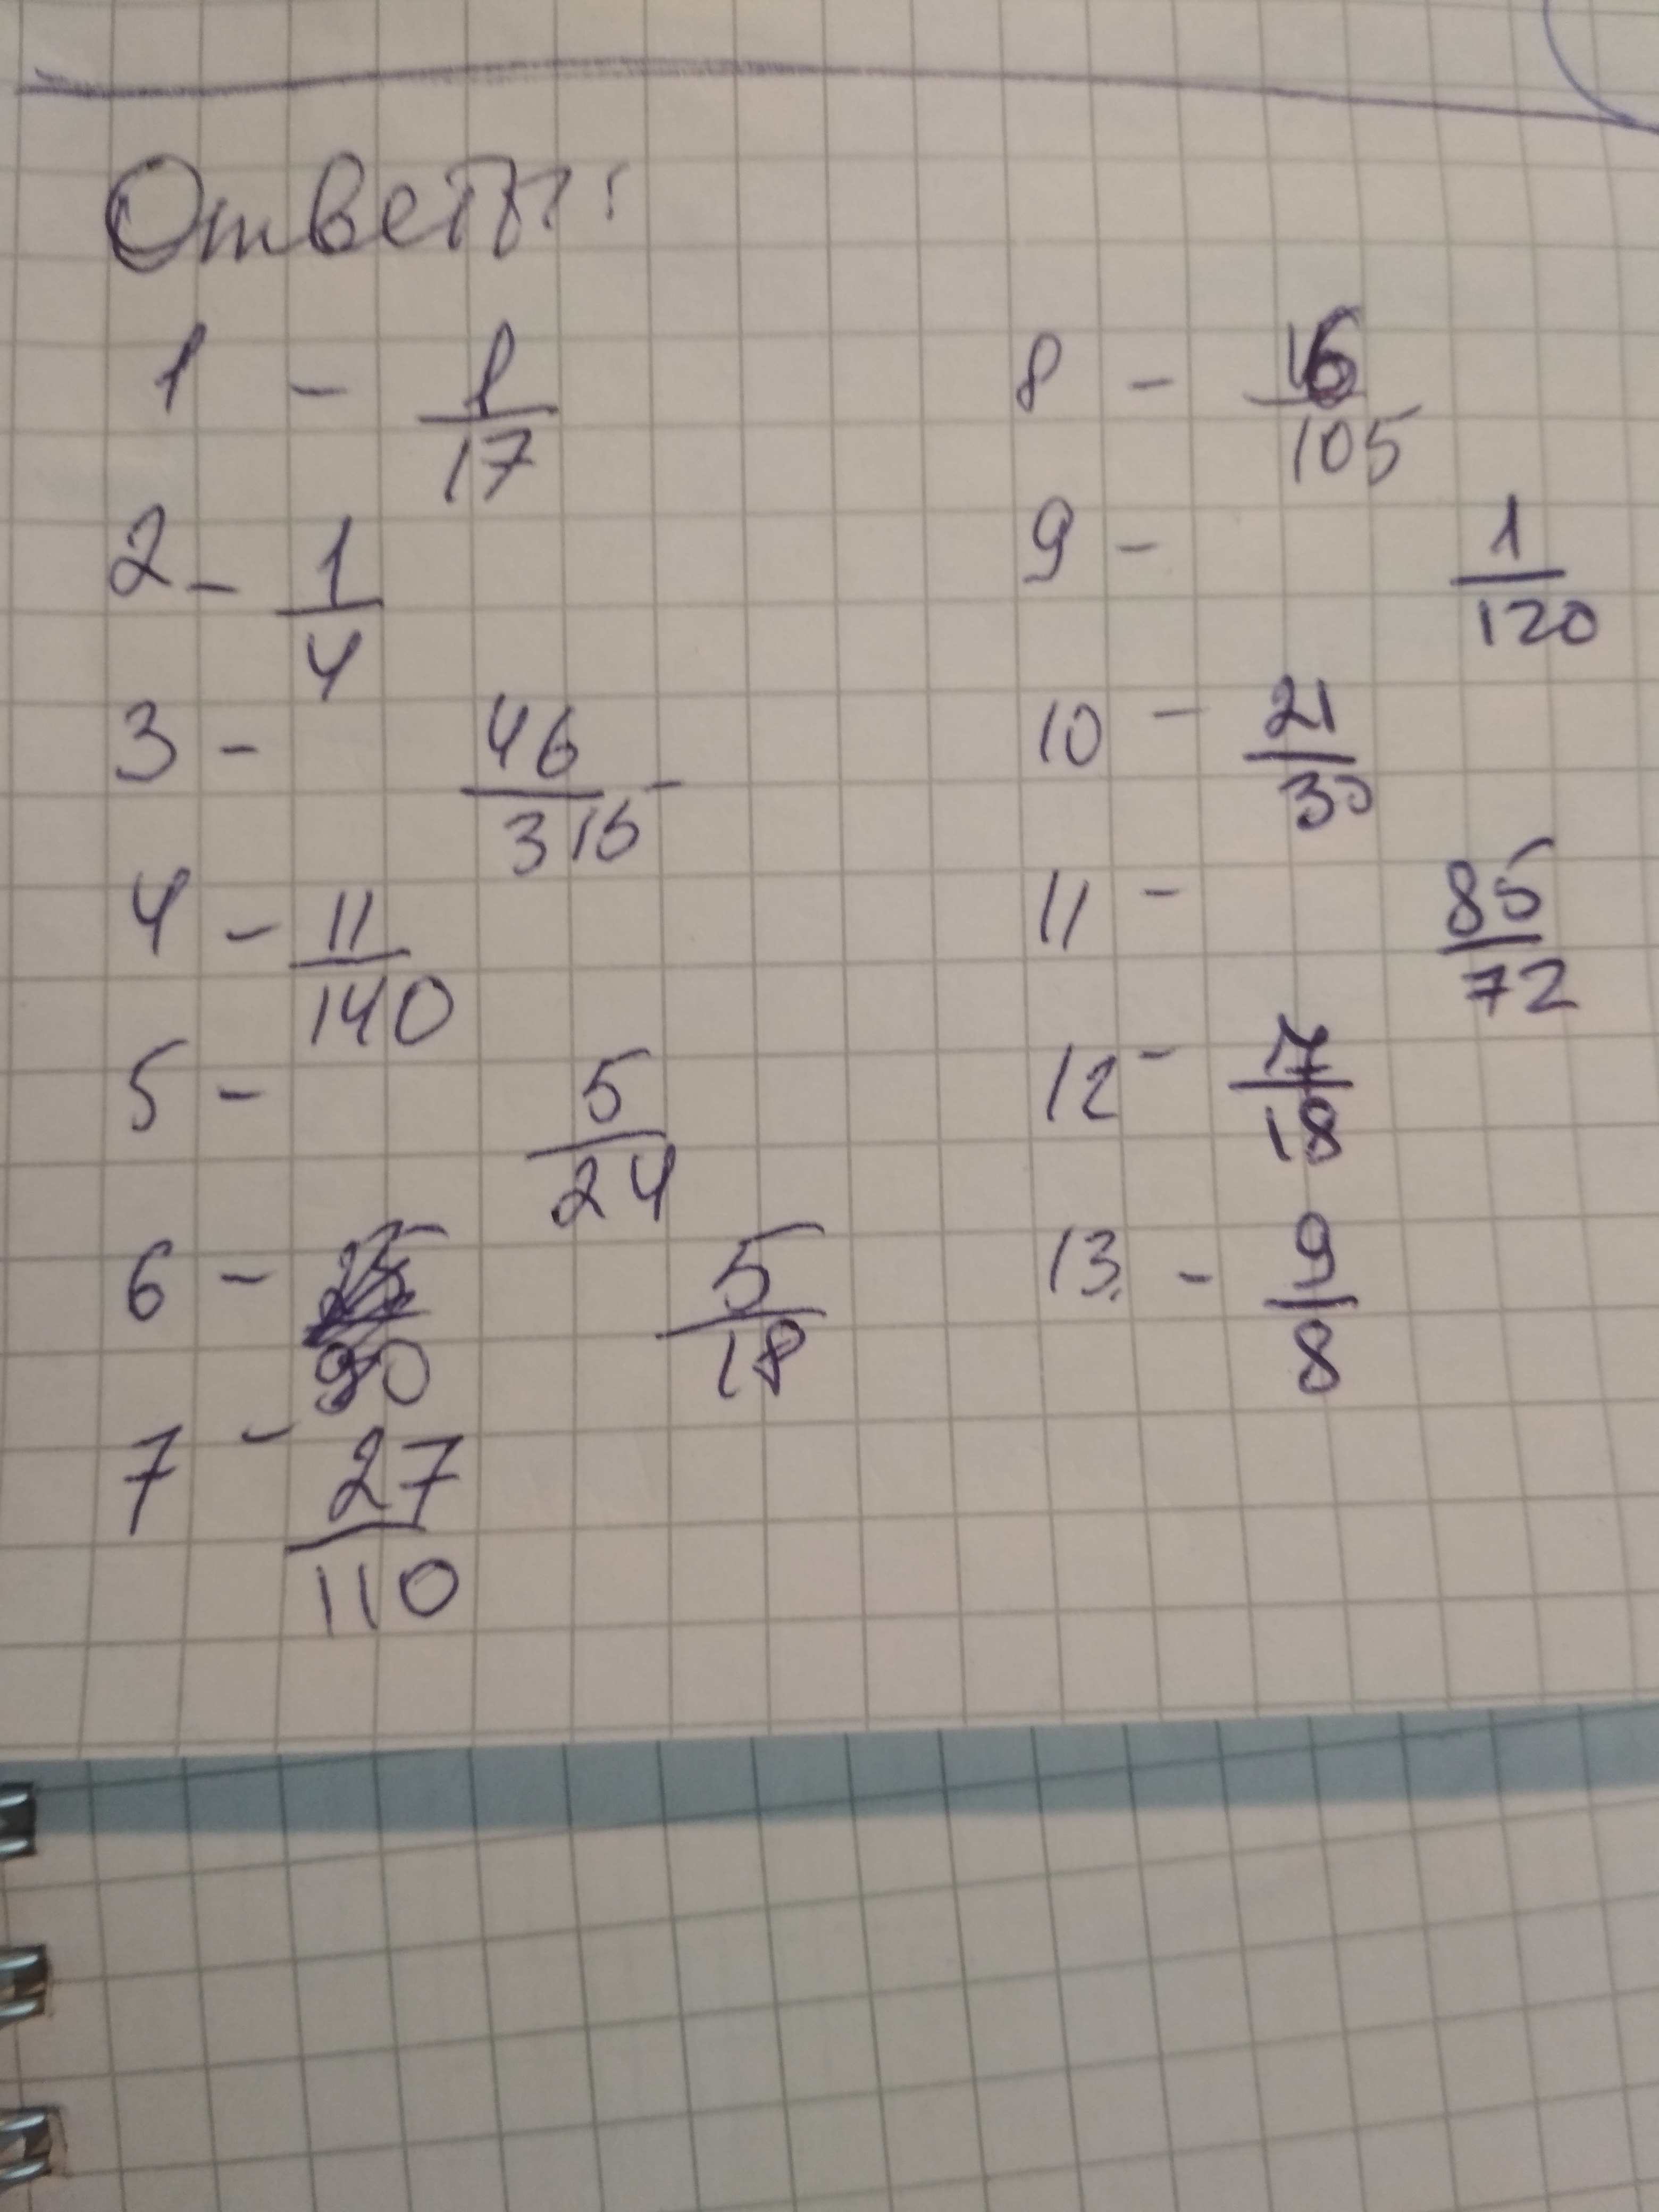 Ответы:
1 - 1/17
2 - 1/4
3 - 46/315
4 - 11/140
5 - 5/24
6 - 5/18
7 - 27/110
8 - 16/105
9 - 1/120
10 - 21/
11 - 85/72
12 - 7/18
13. - 9/8